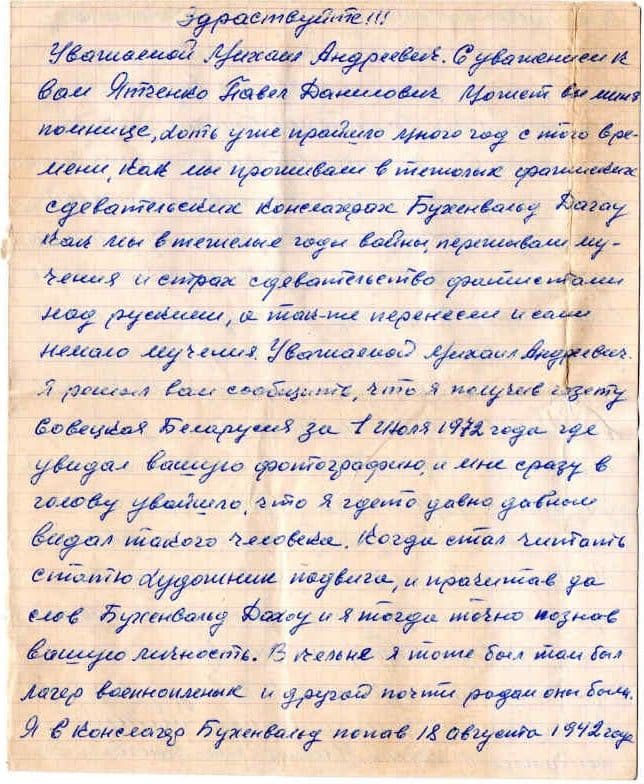 Здраствуйте!!!
Уважаемой Михаил Андреевич. С уважением к
вам Ятченко Павел Данилович может вы меня
помнице, хоть уже прайшло много год с того вре-
мени, как мы проживали в тежолых фашиских
сдевательских Конслахрах Бухенвальд Дагау
как мы в тежелые годы войны, переживали му-
чения и страх сдевательство фашистами
над рускими, а так-же перенесли и сами
немало мучения. Уважаемой Михаил Андреевич.
Я решил вам сообщить, что я получив газету
Совецкая Беларусия за 1 Июля 1972 года где
увидал вашую фотографию, и мне сразу в
голову увайшло, что я гдето давно давном
видал такого человека. Когда стал читать
статю художник падвига, и прачитав да
слов Бухенвальд Дахоу и я тогда точно познав
вашую личность. В Кельне я тоже был там был
лагер военнопленык и другой почти радам они были.
Я в Конслагер Бухенвальд попав 18 августа 1942 года